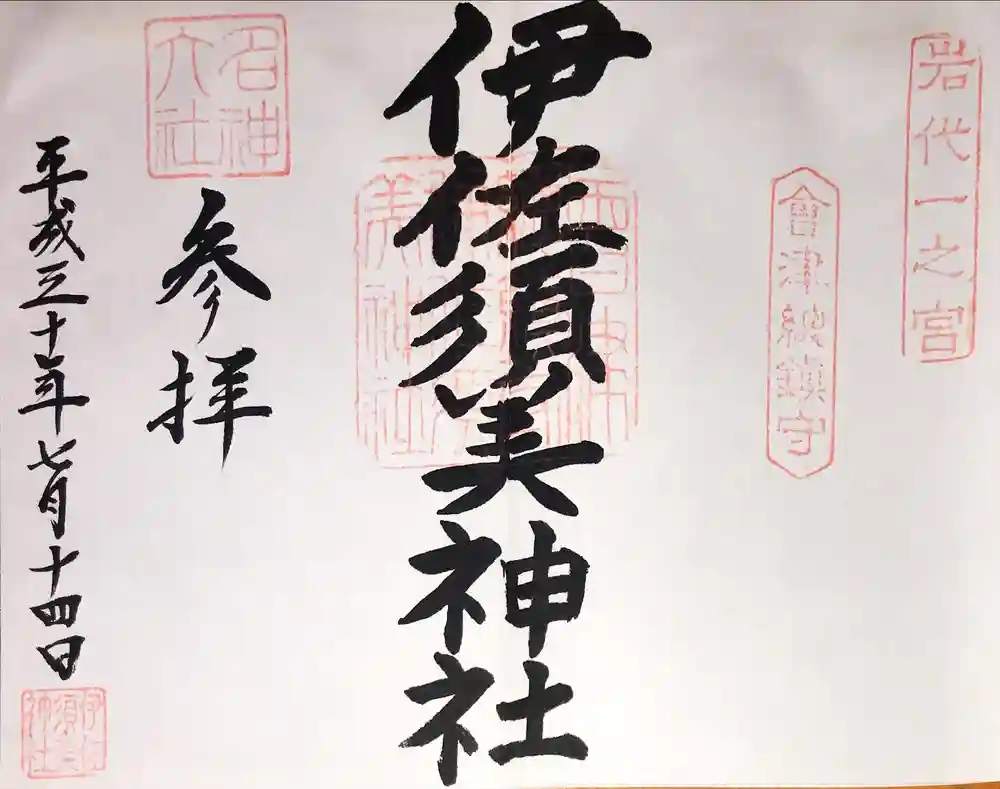 岩代一之宮
會津總鎮守
伊佐須美神社
名神
大社
参拝
平成三十年七月十四日
伊佐
須美
神社